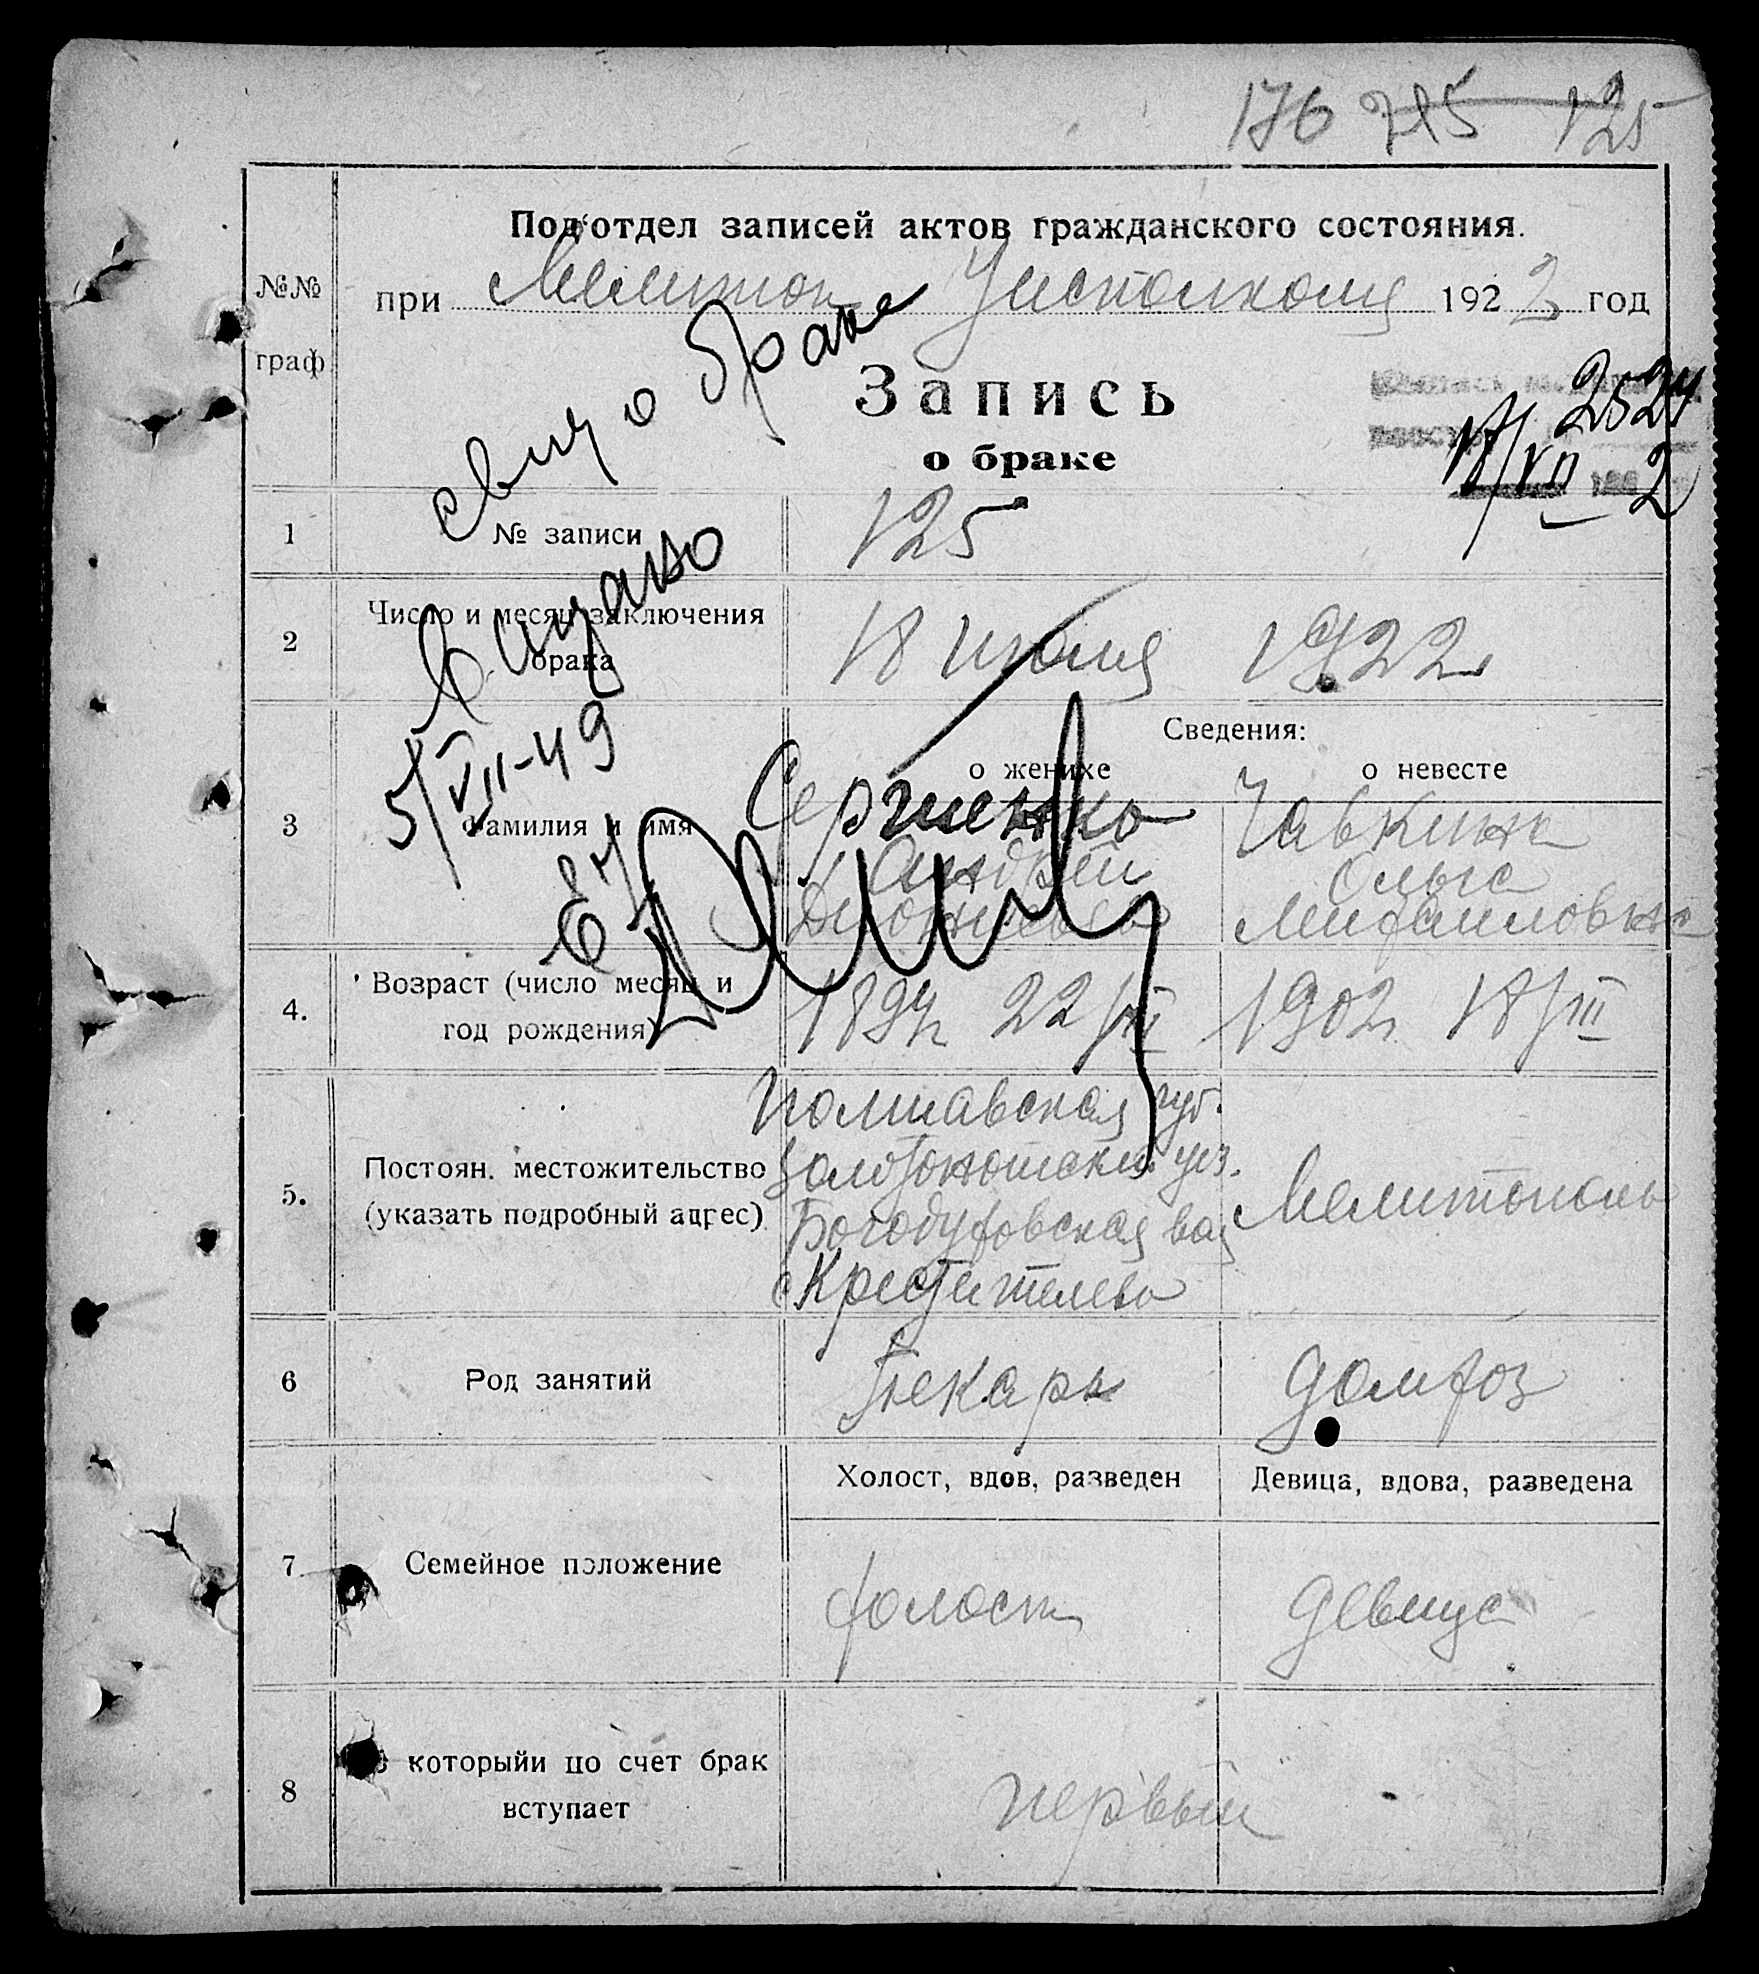 176 215 125
Под'отдел записей актов гражданского состояния.
№№ граф
при Мелитоп Уисполкома 1922 год
Запись
о браке
2524
18/VII 192 2
свид о браке
выдано
5/VII-49
1 № записи 125
2 Число и месяц заключения брака 18 июля 1922
Сведения:
о женихе о невесте
3 Фамилия и имя
Сергиенко Чавкина
Андрей Ольга
Дионисьев Михайловна
4. Возраст (число месяц и год рождения) 22/III 1902 18/III
5. Постоян. местожительство (указать подробный адрес)
Полтавская губ.
Золотоношский уез.
Богодуховская вол Мелитополь
с Крестителево
6 Род занятий Пекарь домхоз
Холост, вдов, разведен Девица, вдова, разведена
7 Семейное положение холост девица
8 которыйи по счет брак вступает первый